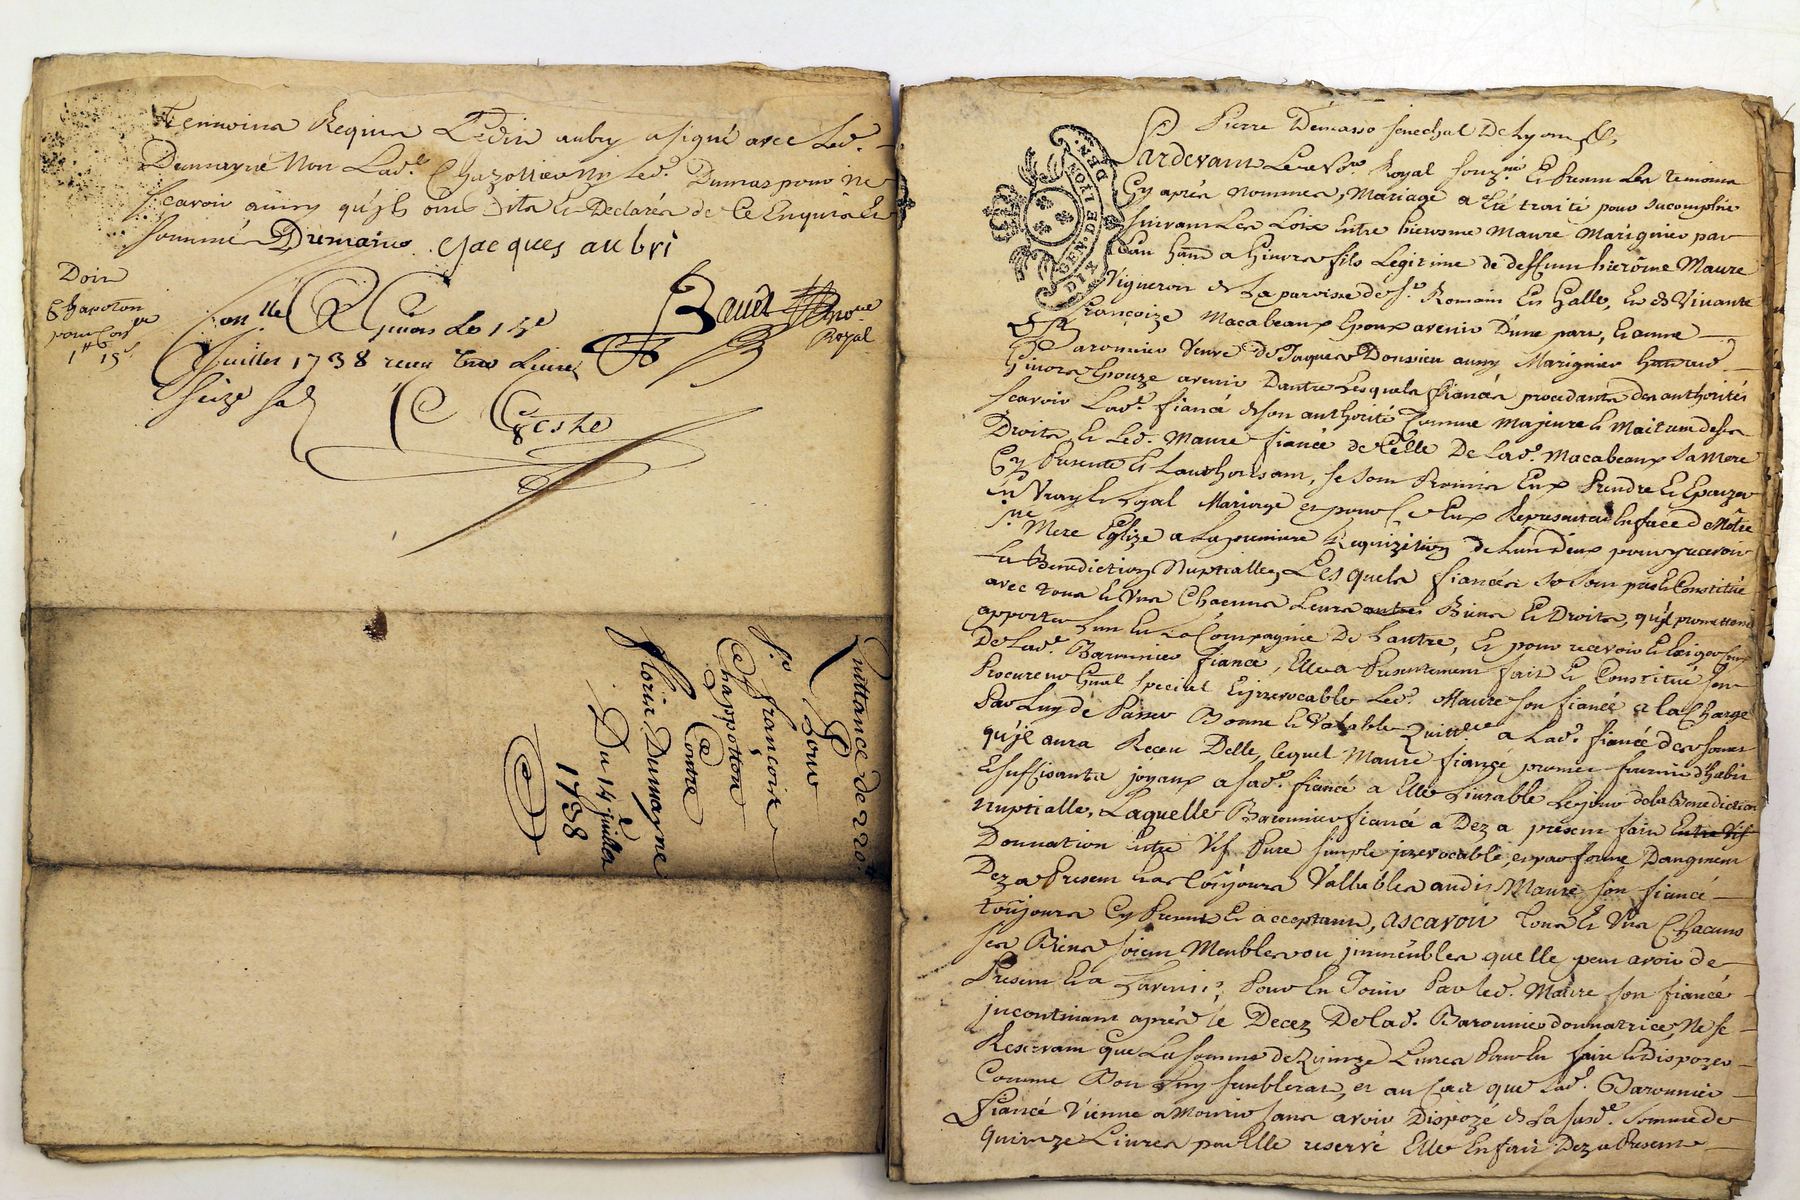 Temoins Requis Ledit aubry a signé avec Led.
Dumayne Non Lad.e Led. Dumas pour ne
scavoir ainsy qu'ils ont Dits et Declarés de Ce Enquis et
sommés Dumaine. Jacques aubri
Doin
Chapoton
pour
1 15
on.lle A Givors le 15e
Juillet 1738 receu Livre
seize sols
Baudt
Royal
Quittance de 220
Pour
Sr françois
Chappotton
Contre
florie Dumayne
Du 14e juillet
1738
Pierre Demasso senechal De Lyon &c
Pardevant Le Royal souz.né Et Present Les temoins
Cy aprés nommes, Mariage a Eté traité pour accomplir
suivant Les Loix Entre hierosme Maure Marignier
a Givors fils Legitime de deffunt hierôme Maure
Vigneron de La paroisse de St Romain En Galle, Et de Vivante
françoize Macabeaux Epoux avenir D'une part, Et anne
GEN. DE LYON
DIX DEN.
Baronnier Veuve de Jaques Donsieu aussy Marignier
Givors Epouze avenir Dautre Lesquels fiancés procedants des authorités
scavoir Lad. fiancé de son authorité Comme Majeure et Maitresse de ses
Droits, et Led. Maure fiancé de Celle De Lad. Macabeaux sa Mere
Cy Presente et Lauthorisant, se sont Promis Eux Prendre et Epouzer
En Vray et Loyal Mariage et pour Ce Eux Representer En face de Nôtre
S.te Mere Eglize a La premiere Requizition de Lun d'eux pour y recevoir
La Benediction Nuptialle, Lesquels fiancés se sont Constitué
avec tous et Uns Chacuns Leurs autres Biens et Droits, qu'ils promettent
apporter Lun En La Compagnie De Lautre, Et pour recevoir et Exiger
De Lad. Baronnier fiancé, Elle a Presentement fait et Constitué son
Procureur G.nal special Et irrevocable Led. Maure son fiancé a la Charge
Par Luy de Passer Bonne et Valable Quitt.ce a Lad. fiancé des sommes
qu'il aura Reçeu Delle, lequel Maure fiancé promet fournir d'habits
Et suffisants joyaux a sad. fiancé a Elle Livrable Le jour de la Benediction
Nuptialle, Laquelle Baronnier fiancé a Dez a présent fait Entre Vif
Donnation Entre Vif Pure simple irrevocable, et par forme Daugment
Dez a Present Et a Toûjours Vallables audit Maure son fiancé
toûjours Cy Present et acceptant, ascavoir Tous et Uns Chacuns
ses Biens soient Meubles ou jmmeubles quelle peut avoir de
Present Et a Lavenir, Pour En Jouir Par Led. Maure son fiancé
jncontinant aprés le Decez De Lad. Baronnier donnatrice, Ne se
Reservant Que La somme de Quinze Livres Pour En faire et Dispozer
Comme Bon Luy semblerat, et au Cas que Lad. Baronnier
fiancé Vienne a Mourir sans avoir Dispozé de La susd.e somme de
quinze Livres par Elle reservé Elle En fait Dez a Present